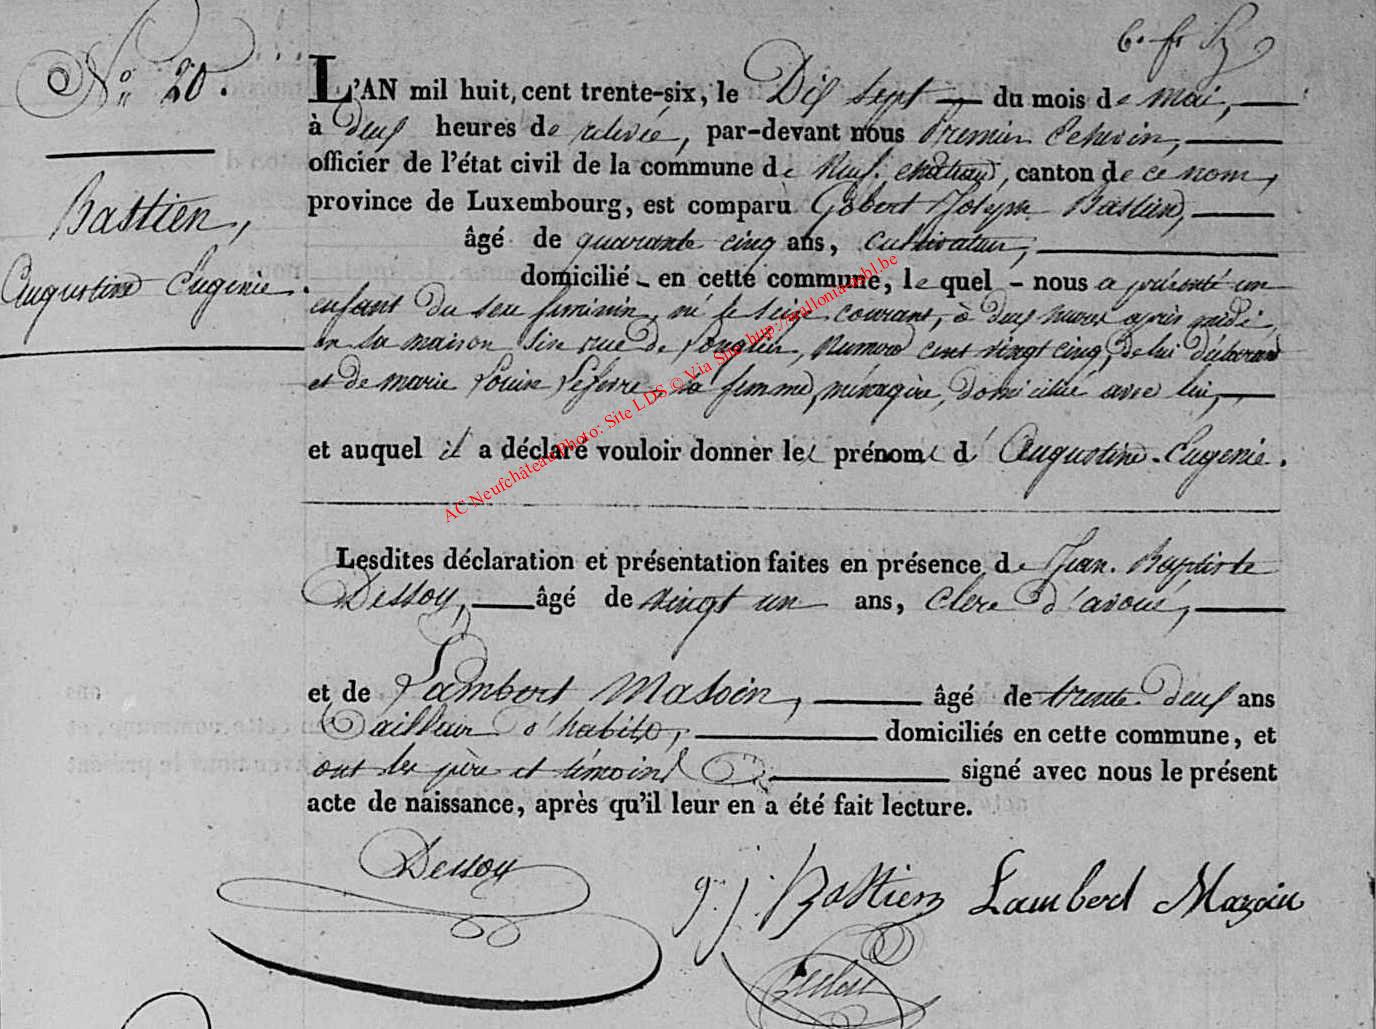 N° 20.
Bastien,
Augustine Eugenie.
L'AN mil huit cent trente-six, le Dix sept du mois de mai,
à deux heures de relevée, par-devant nous Premier Echevin,
officier de l'état civil de la commune de Neuf-château, canton de ce nom,
province de Luxembourg, est comparu Gobert Joseph Bastien,
âgé de quarante cinq ans, cultivateur,
domicilié en cette commune, le quel nous a présenté un
enfant du sexe féminin, né le seize courant, à deux heures après midi
en sa maison sise rue de Longlier, Numero cent vingt cinq, de lui déclarant
et de marie Louise Lefevre sa femme, ménagère, domiciliée avec lui,
et auquel il a déclaré vouloir donner les prénoms d'Augustine-Eugenie.
Lesdites déclaration et présentation faites en présence de Jean-Baptiste
Dessoy, âgé de vingt un ans, clerc d'avoué,
et de Lambert Masoin, âgé de trente deux ans
Tailleur d'habits, domiciliés en cette commune, et
ont les père et témoins signé avec nous le présent
acte de naissance, après qu'il leur en a été fait lecture.
Dessoy
g. j. Bastien Lambert Mazoin
AC Neufchâteau Photo: Site LDS © Via Site http://wallonia-asbl.be